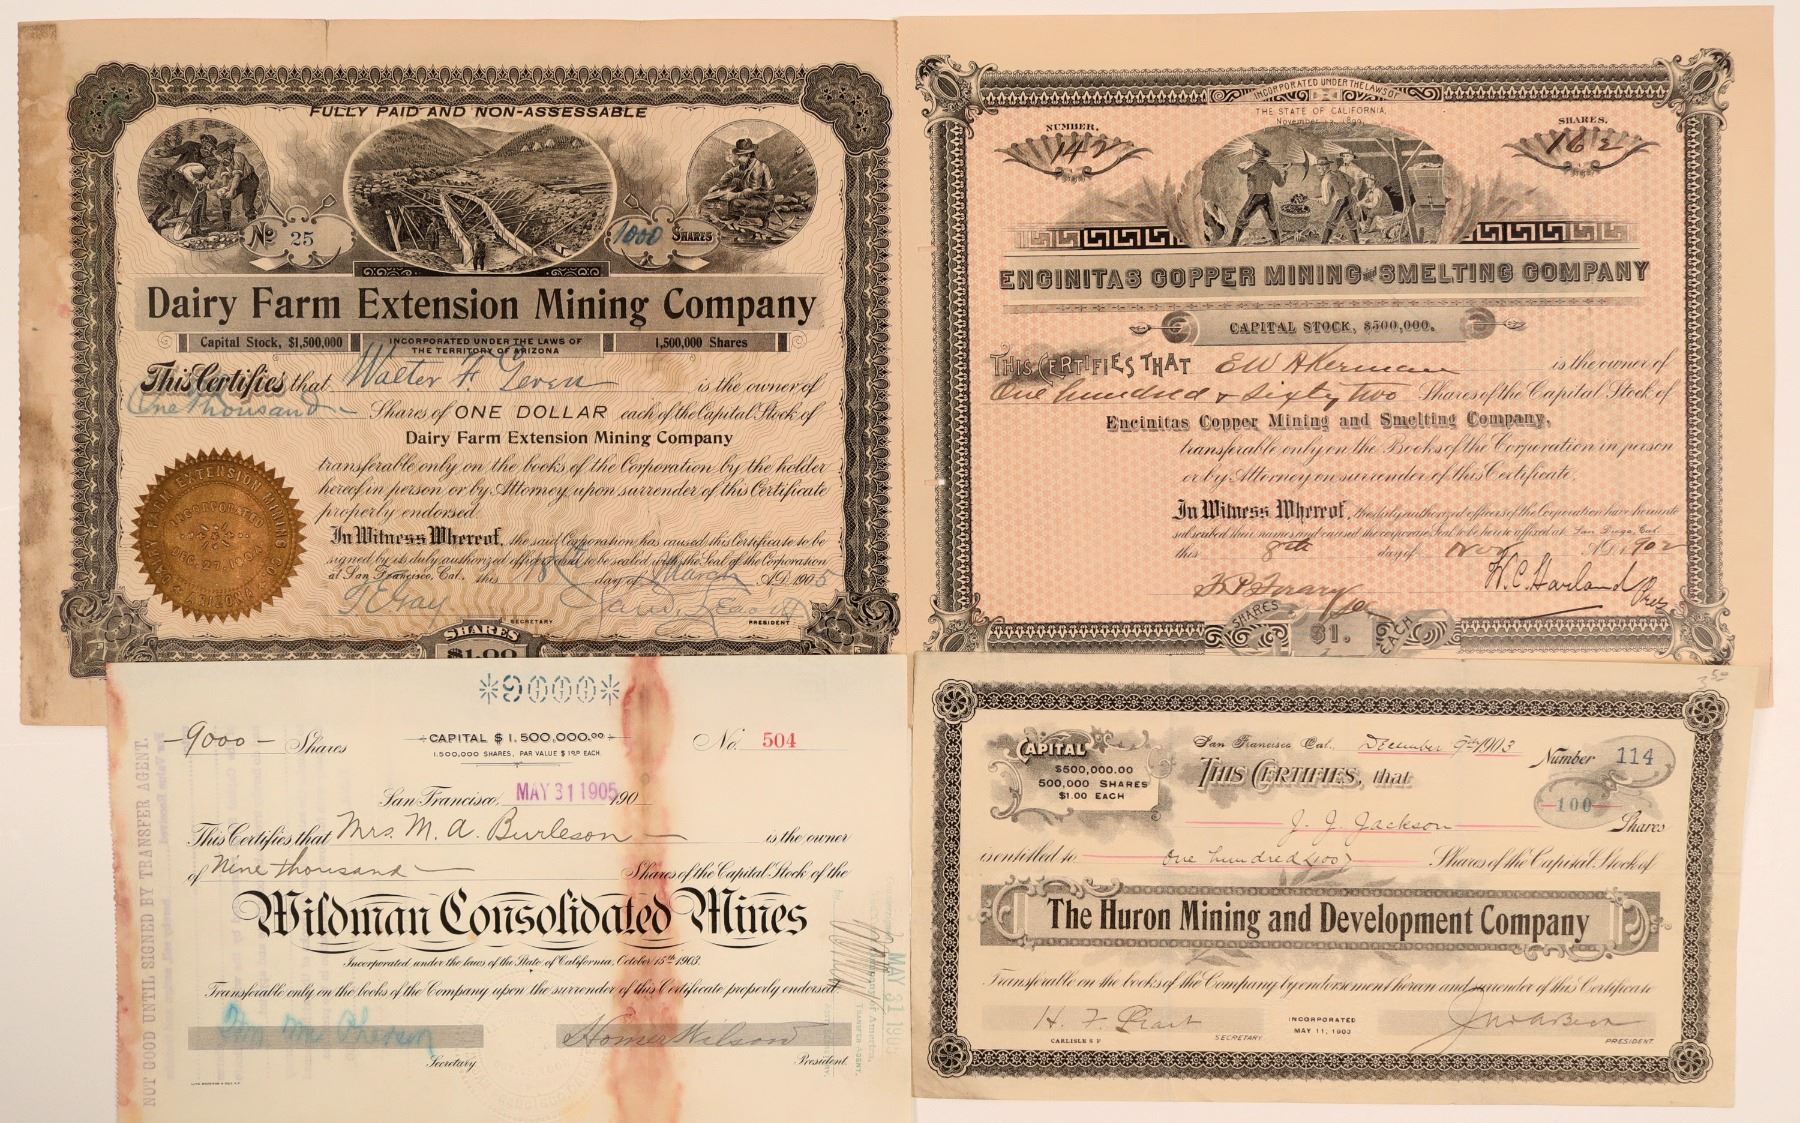 FULLY PAID AND NON-ASSESSABLE
No 25
1000 SHARES
Dairy Farm Extension Mining Company
Capital Stock, $1,500,000
INCORPORATED UNDER THE LAWS OF
THE TERRITORY OF ARIZONA
1,500,000 Shares
This Certifies that Walter F. is the owner of
One thousand Shares of ONE DOLLAR each of the Capital Stock of
Dairy Farm Extension Mining Company
transferable only on the books of the Corporation by the holder
hereof in person or by Attorney upon surrender of this Certificate
properly endorsed.
In Witness Whereof, the said Corporation has caused this Certificate to be
signed by its duly authorized officers and to be sealed with the Seal of the Corporation
at San Francisco, Cal., this day of March A.D. 1905
SECRETARY
PRESIDENT
SHARES
$1.00
DAIRY FARM EXTENSION MINING CO.
INCORPORATED
DEC. 27, 1904
ARIZONA
INCORPORATED UNDER THE LAWS OF
THE STATE OF CALIFORNIA,
NUMBER,
142
SHARES,
162
ENCINITAS COPPER MINING AND SMELTING COMPANY
CAPITAL STOCK, $500,000.
THIS CERTIFIES THAT E W Akerman is the owner of
One hundred & sixty two Shares of the Capital Stock of
Encinitas Copper Mining and Smelting Company,
transferable only on the Books of the Corporation in person
or by Attorney on surrender of this Certificate.
In Witness Whereof, the duly authorized officers of the Corporation have hereunto
subscribed their names and caused the corporate Seal to be hereto affixed at San Diego, Cal.
this 8th day of Nov A.D. 1902
W. C. Harland Pres
SHARES $1. EACH
*9000*
9000 Shares
CAPITAL $1,500,000.00
1,500,000 SHARES, PAR VALUE $1.00 EACH.
No. 504
San Francisco, MAY 31 1905 190
This Certifies that Mrs. M. A. Burleson is the owner
of Nine thousand Shares of the Capital Stock of the
Wildman Consolidated Mines
Incorporated under the laws of the State of California, October 15th 1903.
Transferable only on the books of the Company upon the surrender of this Certificate properly endorsed
Wm McPherson
Secretary
Homer Wilson
President.
NOT GOOD UNTIL SIGNED BY TRANSFER AGENT.
MAY 31 190
TRANSFER AGENT.
3 50
CAPITAL
$500,000.00
500,000 SHARES
$1.00 EACH
San Francisco Cal., December 9th 1903
Number 114
THIS CERTIFIES, that
100
Shares
J. J. Jackson
is entitled to one hundred (100) Shares of the Capital Stock of
The Huron Mining and Development Company
Transferable on the books of the Company by endorsement hereon and surrender of this Certificate
H. F.
INCORPORATED
MAY 11, 1903
CARLISLE S F
SECRETARY
PRESIDENT